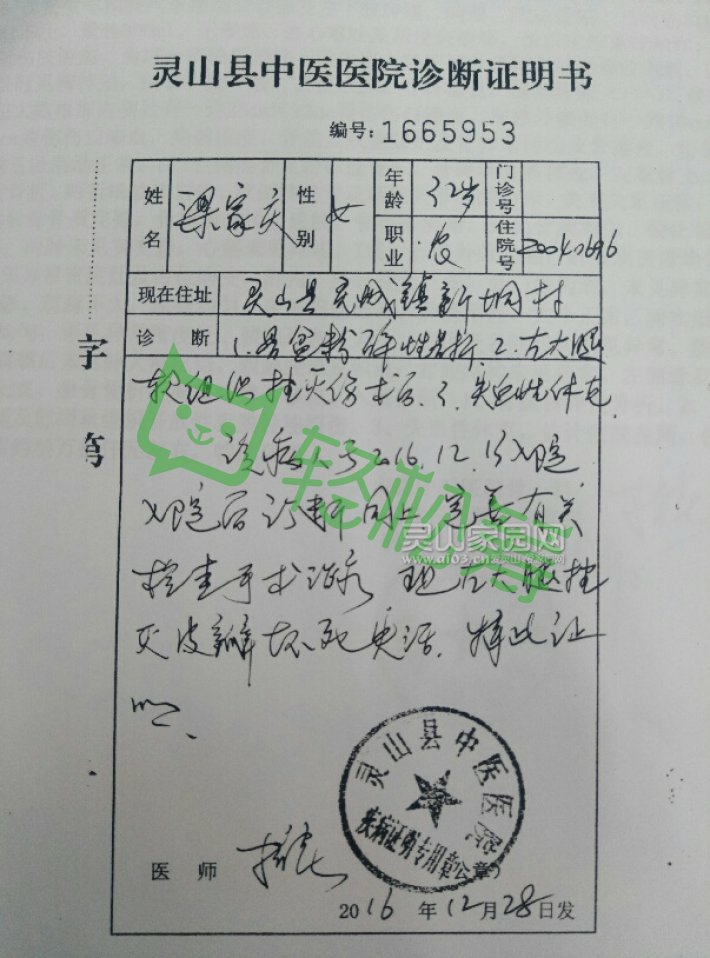 灵山县中医医院诊断证明书
编号:1665953
姓名 梁家庆 性别 女 年龄 32岁 门诊号
职业 农 住院号
现在住址 灵山县灵城镇新垌村
诊断 1.骨盆粉碎性骨折 2.左大腿
软组织挫灭伤术后 3.失血性休克
该病人于2016.12.15入院
入院后诊断同上 完善有关
检查手术治疗 现左大腿挫
灭皮瓣坏死 特此证
明
灵山县中医医院
疾病证明专用章(公章)
医师
2016年12月28日发
字
轻松筹
灵山家园网